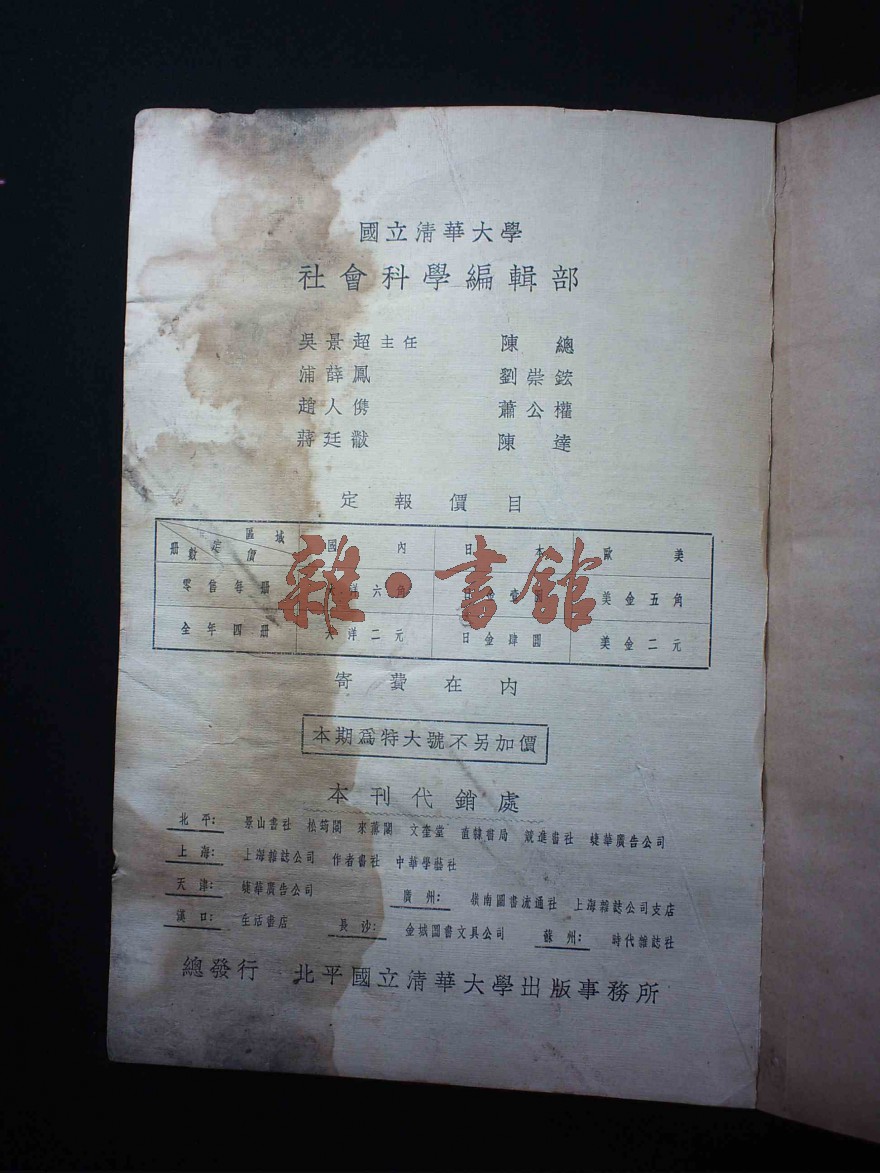 國立清華大學
社會科學編輯部
吳景超主任 陳總
浦薛鳳 劉崇鋐
趙人儁 蕭公權
蔣廷黻 陳達
定報價目
區域 定價 冊數 國內 日本 歐美
零售每冊 大洋六角 日金壹圓 美金五角
全年四冊 大洋二元 日金肆圓 美金二元
雜·書館
寄費在內
本期為特大號不另加價
本刊代銷處
北平: 景山書社 松筠閣 來薰閣 文奎堂 直隸書局 競進書社 婕華廣告公司
上海: 上海雜誌公司 作者書社 中華學藝社
天津: 婕華廣告公司 廣州: 嶺南圖書流通社 上海雜誌公司支店
漢口: 生活書店 長沙: 金城圖書文具公司 蘇州: 時代雜誌社
總發行 北平國立清華大學出版事務所